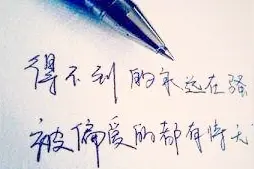 得不到的永远在骚
被偏爱的都有恃无